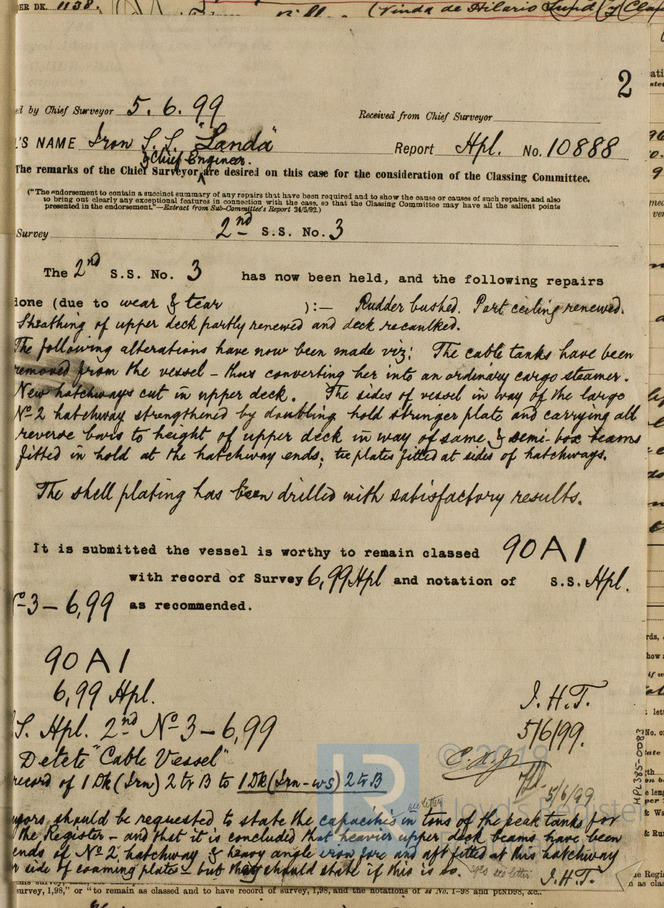 ER DK. 1138.
(Vinda de Hilario
2
ed by Chief Surveyor 5.6.99 Received from Chief Surveyor
L'S NAME Iron S.S. "Landa" Report Hpl. No. 10888
& Chief Engineer.
The remarks of the Chief Surveyor are desired on this case for the consideration of the Classing Committee.
("The endorsement to contain a succinct summary of any repairs that have been required and to show the cause or causes of such repairs, and also
to bring out clearly any exceptional features in connection with the case, so that the Classing Committee may have all the salient points
presented in the endorsement."—Extract from Sub-Committee's Report 24/5/92.)
Survey 2nd S.S. No. 3
The 2nd S.S. No. 3 has now been held, and the following repairs
done (due to wear & tear ):— Rudder bushed. Part ceiling renewed.
Sheathing of upper deck partly renewed and deck recaulked.
The following alterations have now been made viz: The cable tanks have been
removed from the vessel – thus converting her into an ordinary cargo steamer.
New hatchways cut in upper deck. The sides of vessel in way of the large
No 2 hatchway strengthened by doubling hold stringer plate and carrying all
reverse bars to height of upper deck in way of same & semi-box beams
fitted in hold at the hatchway ends; tie plates fitted at sides of hatchways.
The shell plating has been drilled with satisfactory results.
It is submitted the vessel is worthy to remain classed 90A1
with record of Survey 6,99 Hpl and notation of S.S. Hpl.
No 3 – 6,99 as recommended.
90A1
6,99 Hpl. J.H.T.
S. Hpl. 2nd No 3 – 6,99 5/6/99.
Delete "Cable Vessel"
record of 1 Dk (Irn) 2 tr B to 1 Dk (Irn - ws) 2 tr B 5/6/99
see letter
should be requested to state the capacities in tons of the peak tanks for
the Register – and that it is concluded that heavier upper deck beams have been
ends of No 2 hatchway & heavy angle iron fore and aft fitted at this hatchway
side of coaming plates – but they should state if this is so. see letter J.H.T.
survey, 1,98," or "to remain as classed and to have record of survey, 1,98, and the notations of ss No. 1-98 and ptND98, &c.
© 2019
Lloyd's Register
HPL385-0083